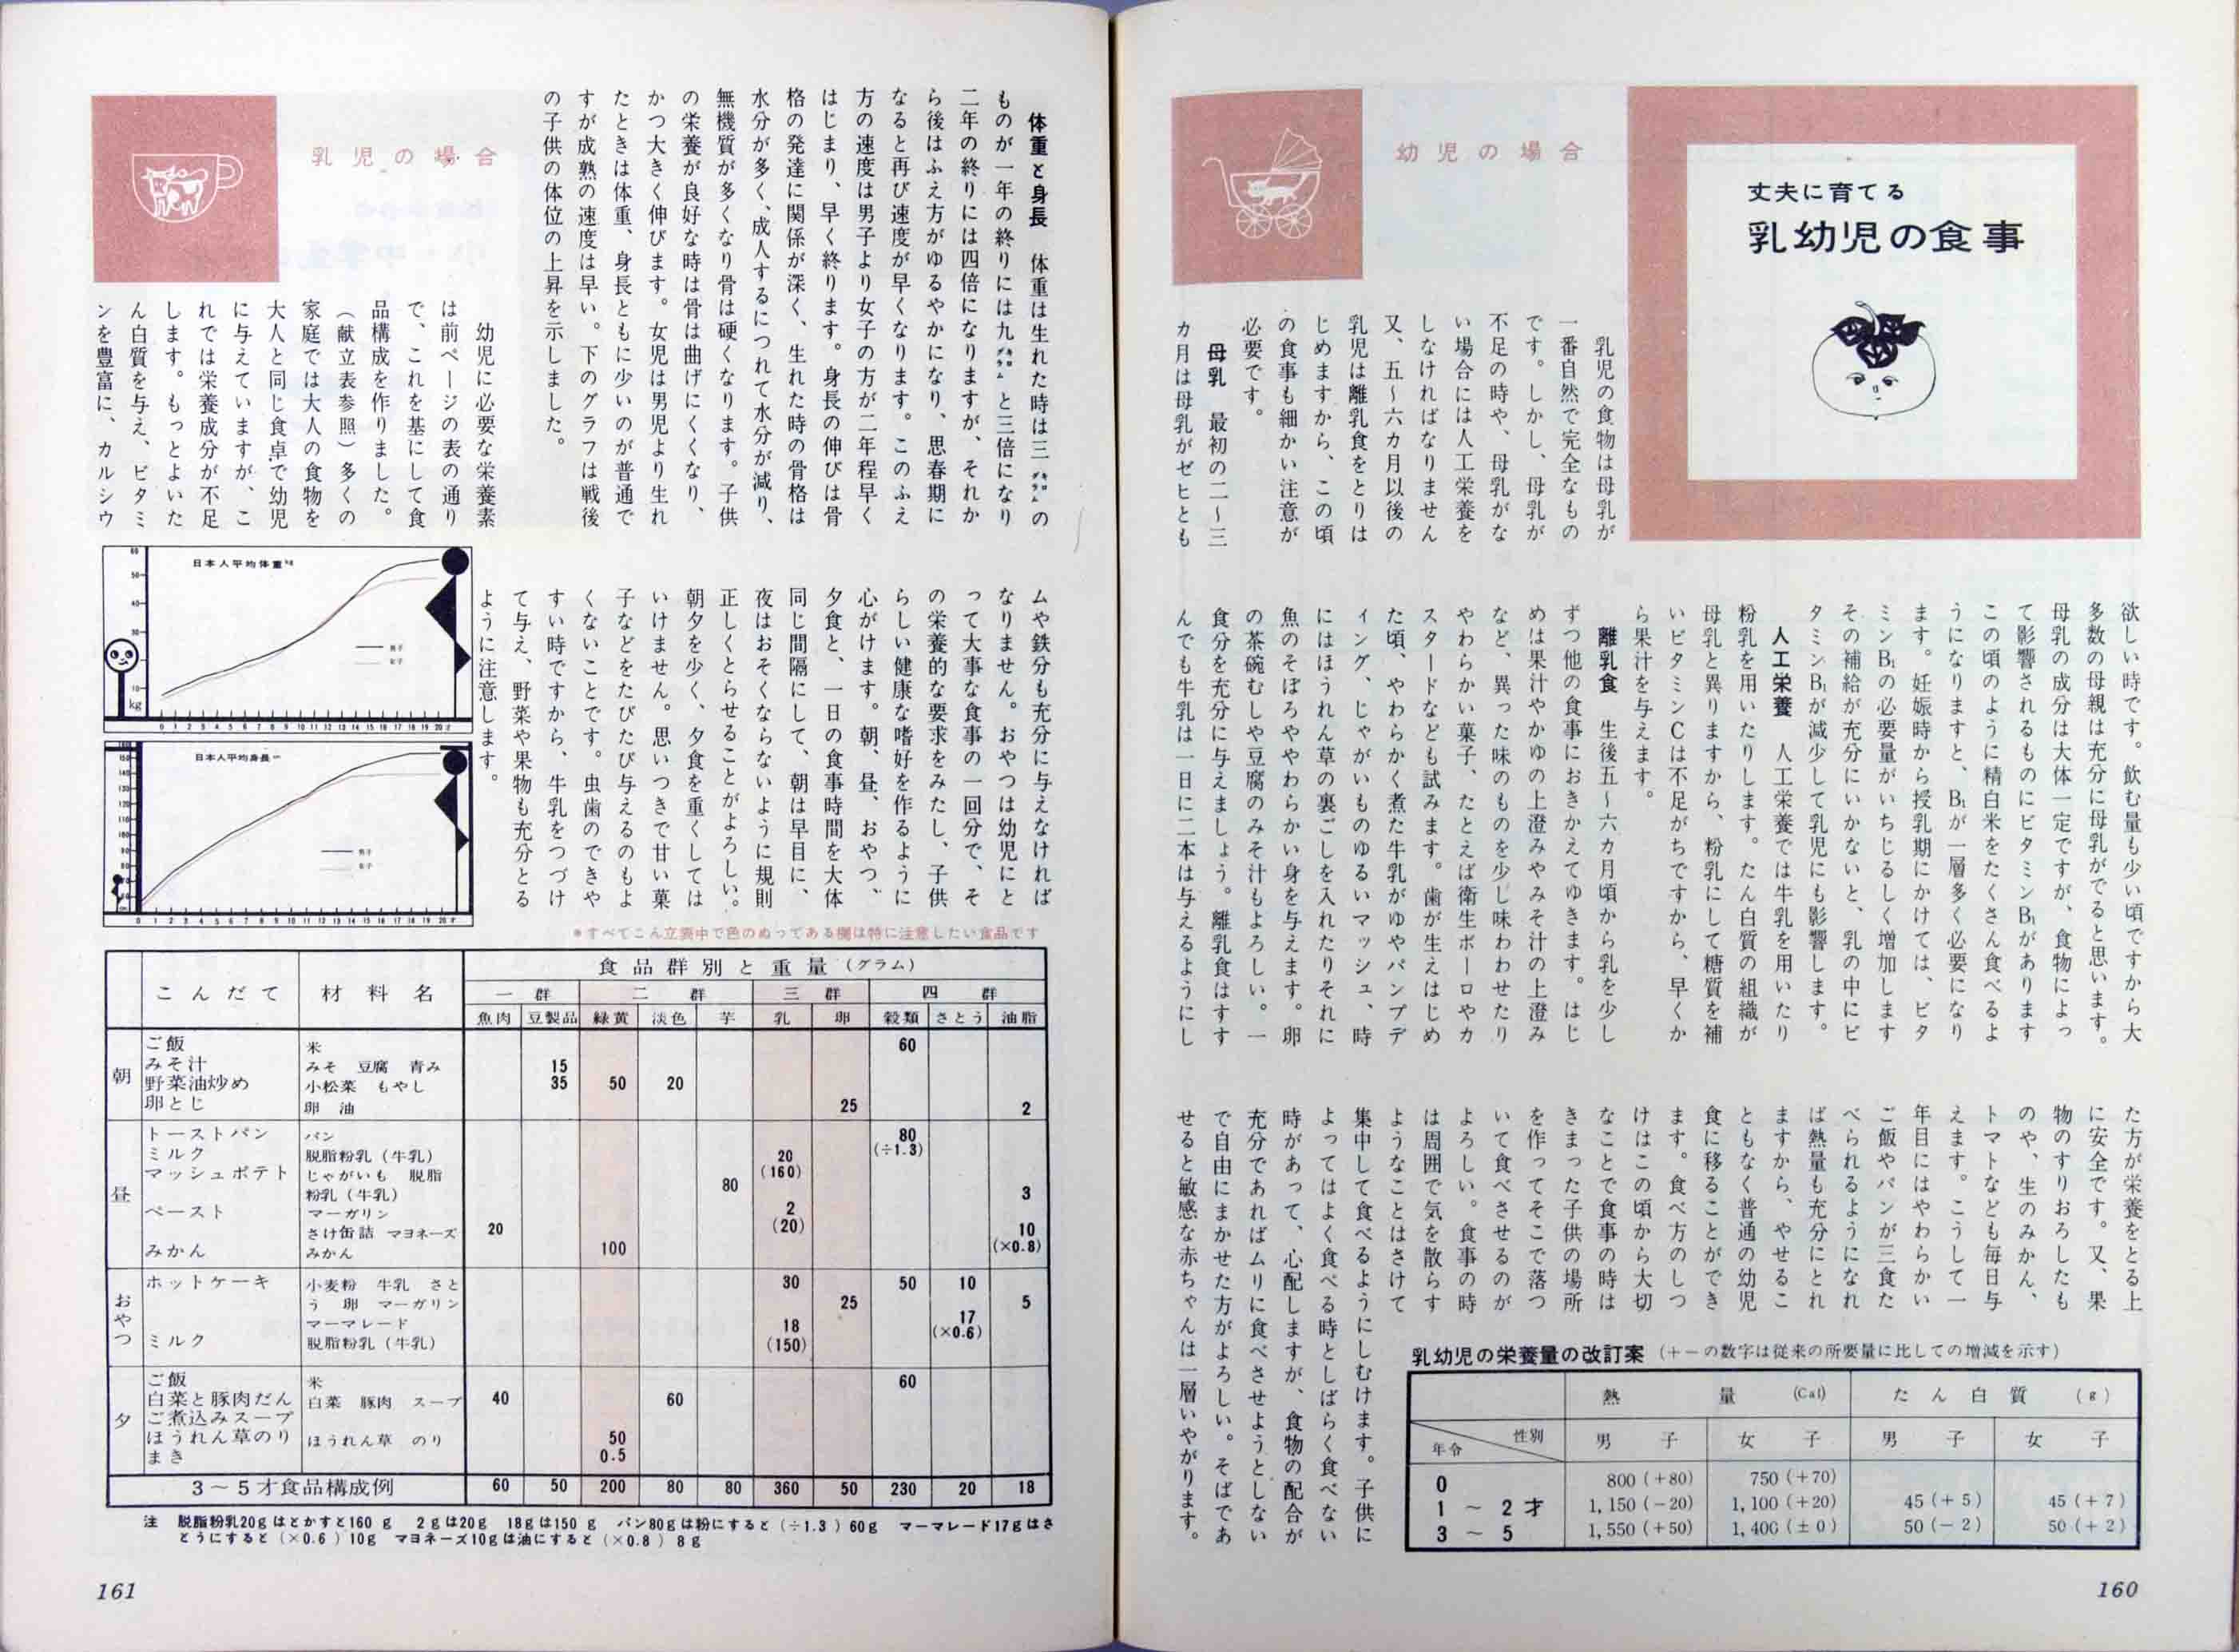 丈夫に育てる
乳幼児の食事
幼児の場合
乳児の食物は母乳が
一番自然で完全なもの
です。しかし、母乳が
不足の時や、母乳がな
い場合には人工栄養を
しなければなりません
又、五〜六カ月以後の
乳児は離乳食をとりは
じめますから、この頃
の食事も細かい注意が
必要です。
母乳　最初の二〜三
カ月は母乳がゼヒとも
欲しい時です。飲む量も少い頃ですから大
多数の母親は充分に母乳がでると思います。
母乳の成分は大体一定ですが、食物によっ
て影響されるものにビタミンB₁があります
この頃のように精白米をたくさん食べるよ
うになりますと、B₁が一層多く必要になり
ます。妊娠時から授乳期にかけては、ビタ
ミンB₁の必要量がいちじるしく増加します
その補給が充分にいかないと、乳の中にビ
タミンB₁が減少して乳児にも影響します。
人工栄養　人工栄養では牛乳を用いたり
粉乳を用いたりします。たん白質の組織が
母乳と異りますから、粉乳にして糖質を補
いビタミンCは不足がちですから、早くか
ら果汁を与えます。
離乳食　生後五〜六カ月頃から乳を少し
ずつ他の食事におきかえてゆきます。はじ
めは果汁やかゆの上澄みやみそ汁の上澄み
など、異った味のものを少し味わわせたり
やわらかい菓子、たとえば衛生ボーロやカ
スタードなども試みます。歯が生えはじめ
た頃、やわらかく煮た牛乳がゆやパンプデ
ィング、じゃがいものゆるいマッシュ、時
にはほうれん草の裏ごしを入れたりそれに
魚のそぼろややわらかい身を与えます。卵
の茶碗むしや豆腐のみそ汁もよろしい。一
食分を充分に与えましょう。離乳食はすす
んでも牛乳は一日に二本は与えるようにし
た方が栄養をとる上
に安全です。又、果
物のすりおろしたも
のや、生のみかん、
トマトなども毎日与
えます。こうして一
年目にはやわらかい
ご飯やパンが三食た
べられるようになれ
ば熱量も充分にとれ
ますから、やせるこ
ともなく普通の幼児
食に移ることができ
ます。食べ方のしつ
けはこの頃から大切
なことで食事の時は
きまった子供の場所
を作ってそこで落つ
いて食べさせるのが
よろしい。食事の時
は周囲で気を散らす
ようなことはさけて
集中して食べるようにしむけます。子供に
よってはよく食べる時としばらく食べない
時があって、心配しますが、食物の配合が
充分であればムリに食べさせようとしない
で自由にまかせた方がよろしい。そばであ
せると敏感な赤ちゃんは一層いやがります。
乳幼児の栄養量の改訂案（＋－の数字は従来の所要量に比しての増減を示す）
熱量 (Cal) たん白質 (g)
年令 性別 男子 女子 男子 女子
0 800（+80） 750（+70）
1 〜 2 才 1,150（−20） 1,100（+20） 45（+5） 45（+7）
3 〜 5 1,550（+50） 1,400（±0） 50（−2） 50（+2）
160
体重と身長　体重は生れた時は三キログラムの
ものが一年の終りには九キログラムと三倍になり
二年の終りには四倍になりますが、それか
ら後はふえ方がゆるやかになり、思春期に
なると再び速度が早くなります。このふえ
方の速度は男子より女子の方が二年程早く
はじまり、早く終ります。身長の伸びは骨
格の発達に関係が深く、生れた時の骨格は
水分が多く、成人するにつれて水分が減り、
無機質が多くなり骨は硬くなります。子供
の栄養が良好な時は骨は曲げにくくなり、
かつ大きく伸びます。女児は男児より生れ
たときは体重、身長ともに少いのが普通で
すが成熟の速度は早い。下のグラフは戦後
の子供の体位の上昇を示しました。
乳児の場合
幼児に必要な栄養素
は前ページの表の通り
で、これを基にして食
品構成を作りました。
（献立表参照）多くの
家庭では大人の食物を
大人と同じ食卓で幼児
に与えていますが、こ
れでは栄養成分が不足
します。もっとよいた
ん白質を与え、ビタミ
ンを豊富に、カルシウ
ムや鉄分も充分に与えなければ
なりません。おやつは幼児にと
って大事な食事の一回分で、そ
の栄養的な要求をみたし、子供
らしい健康な嗜好を作るように
心がけます。朝、昼、おやつ、
夕食と、一日の食事時間を大体
同じ間隔にして、朝は早目に、
夜はおそくならないように規則
正しくとらせることがよろしい。
朝夕を少く、夕食を重くしては
いけません。思いつきで甘い菓
子などをたびたび与えるのもよ
くないことです。虫歯のできや
すい時ですから、牛乳をつづけ
て与え、野菜や果物も充分とる
ように注意します。
日本人平均体重kg
男子
女子
kg
0 1 2 3 4 5 6 7 8 9 10 11 12 13 14 15 16 17 18 19 20才
日本人平均身長
男子
女子
0 1 2 3 4 5 6 7 8 9 10 11 12 13 14 15 16 17 18 19 20才
＊すべてこん立表中で色のぬってある欄は特に注意したい食品です
こんだて 材料名 食品群別と重量（グラム）
一群 二群 三群 四群
魚肉 豆製品 緑黄 淡色 芋 乳 卵 穀類 さとう 油脂
朝
ご飯 米 60
みそ汁 みそ　豆腐　青み 15
野菜油炒め 小松菜　もやし 35 50 20
卵とじ 卵　油 25 2
昼
トーストパン パン 80 (÷1.3)
ミルク 脱脂粉乳（牛乳） 20 (160)
マッシュポテト じゃがいも　脱脂 80
粉乳（牛乳） 2 (20) 3
ペースト マーガリン
さけ缶詰　マヨネーズ 20 10 (×0.8)
みかん みかん 100
おやつ
ホットケーキ 小麦粉　牛乳　さと 30 50 10
う　卵　マーガリン 25 5
マーマレード 17 (×0.6)
ミルク 脱脂粉乳（牛乳） 18 (150)
夕
ご飯 米 60
白菜と豚肉だん 白菜　豚肉　スープ 40 60
ご煮込みスープ
ほうれん草のり ほうれん草　のり 50
まき 0.5
3〜5才食品構成例 60 50 200 80 80 360 50 230 20 18
注　脱脂粉乳20gはとかすと160g　2gは20g　18gは150g　パン80gは粉にすると（÷1.3）60g　マーマレード17gはさ
とうにすると（×0.6）10g　マヨネーズ10gは油にすると（×0.8）8g
161